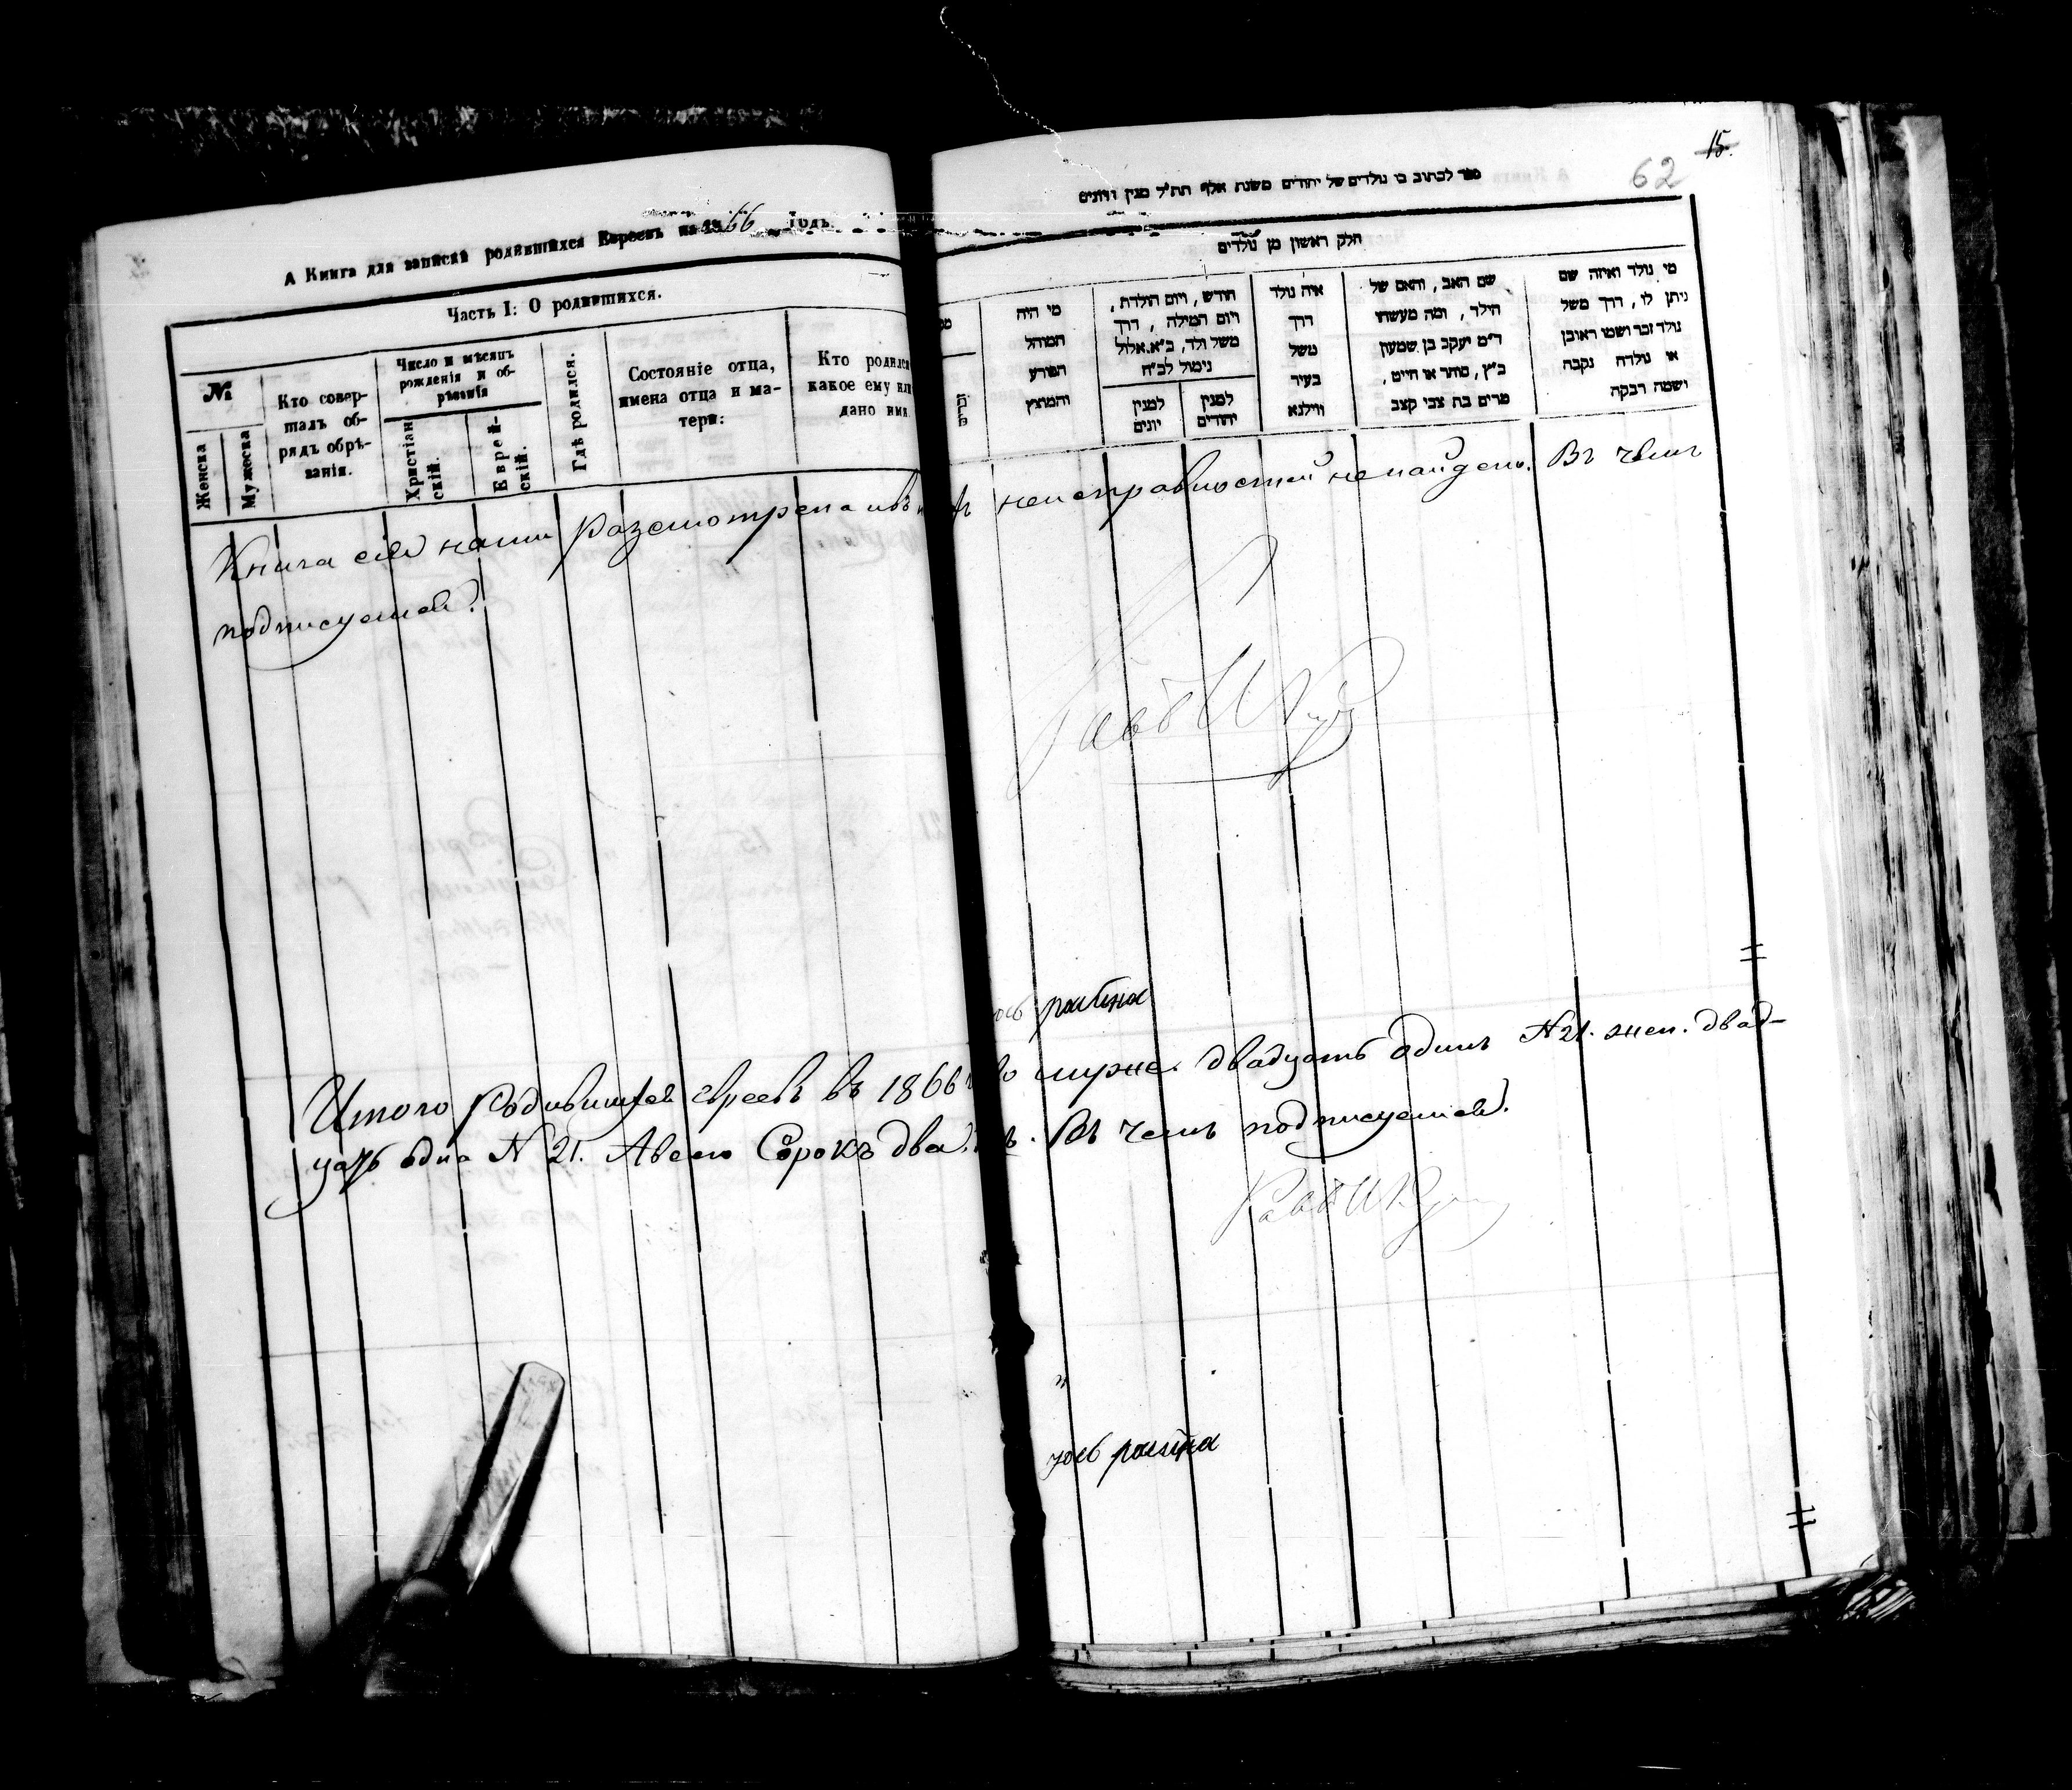 15.
62
А Книга для записки родившихся Евреевъ на 1866 Годъ
Часть I: О родившихся.
№
Женска
Мужеска
Кто совер-
шалъ об-
рядъ обрѣ-
занія.
Число и мѣсяцъ
рожденія и об-
рѣзанія
Христіан
скій.
Еврей-
скій.
Гдѣ родился.
Состояніе отца,
имена отца и ма-
тери:
Кто родился
какое ему или
дано имя.
ספר לכתוב בו נולדים של יהודים משנת אלף תת״ל מנין ויונים
חלק ראשון מן נולדים
מי נולד ואיזה שם
ניתן לו, דרך משל
נולד זכר ושמו ראובן
או נולדה נקבה
ושמה רבקה
שם האב, והאם של
הילד, ומה מעשהו
ד״מ יעקב בן שמעון
כ״ץ, סוחר או חייט,
מרים בת צבי קצב
איה נולד
דרך
משל
בעיר
ווילנא
חודש, ויום הולדת,
ויום המילה, דרך
משל ולד, ב״א.אלול
נימול לב״ח
למנין
יהודים
למנין
יונים
מי היה
המוהל
הפורע
והמוצץ
Книга сія нами Разсмотрена и въ неисправностей не найдено. Въ чемъ
подписуемся.
Итого Родившихся евреевъ въ 1866 муже. двадцать одинъ N 21. жен. двад-
цать одна N 21. А всего Сорокъ два. Въ чемъ подписуемся.